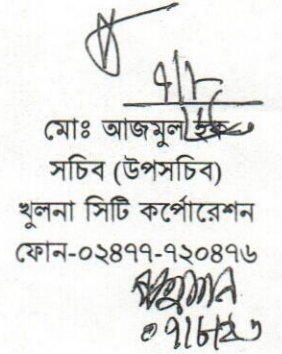 মোঃ আজমুল হক
সচিব (উপসচিব)
খুলনা সিটি কর্পোরেশন
ফোন-০২৪৭৭-৭২০৪৭৬